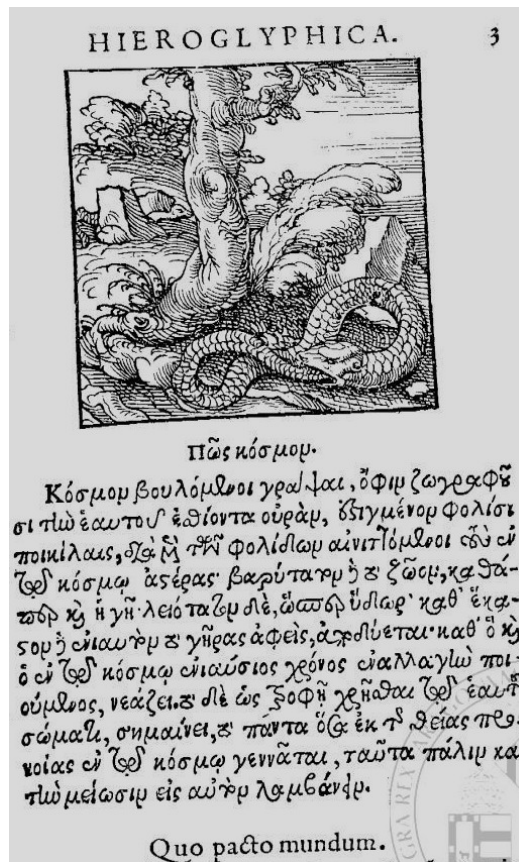 HIEROGLYPHICA. 3
Πῶς κόσμον.
Κόσμον βουλόμενοι γράψαι, ὄφιν ζωγραφοῦ
σι τὴν ἑαυτοῦ ἐσθίοντα οὐρὰν, ἐστιγμένον φολίσι
ποικίλαις, διὰ μὲν τῶν φολίδων αἰνιττόμενοι τοὺς ἐν
τῷ κόσμῳ ἀστέρας· βαρύτατον δὲ τὸ ζῶον, καθά-
περ καὶ ἡ γῆ· λειότατον δὲ, ὥσπερ ὕδωρ· καθ' ἕκα-
στον δὲ ἐνιαυτὸν τὸ γῆρας ἀφεὶς, ἀποδύεται· καθ' ὃ καὶ
ὁ ἐν τῷ κόσμῳ ἐνιαύσιος χρόνος ἐναλλαγὴν ποι-
ούμενος, νεάζει. τὸ δὲ ὡς τροφῇ χρῆσθαι τῷ ἑαυτοῦ
σώματι, σημαίνει, τὸ πάντα ὅσα ἐκ τῆς θείας προ-
νοίας ἐν τῷ κόσμῳ γεννᾶται, ταῦτα πάλιν καὶ
τὴν μείωσιν εἰς αὐτὸν λαμβάνειν.
Quo pacto mundum.